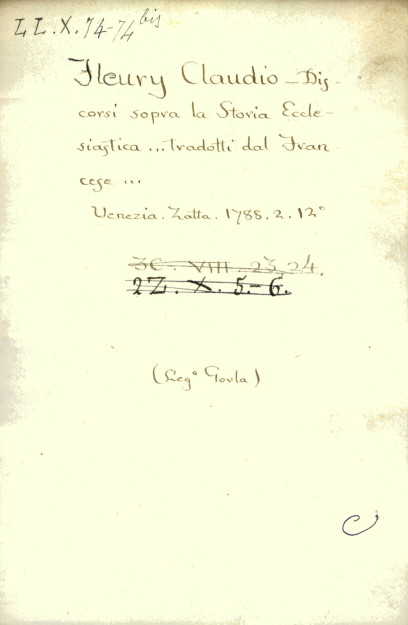 LL.X.74-74 bis
Fleury Claudio - Dis-
corsi sopra la Storia Eccle-
siastica ... tradotti dal Fran-
cese ...
Venezia. Zatta. 1788. 2. 12°
3C. VIII. 23, 24.
2Z. X. 5.-6.
(Leg° Govla)
C